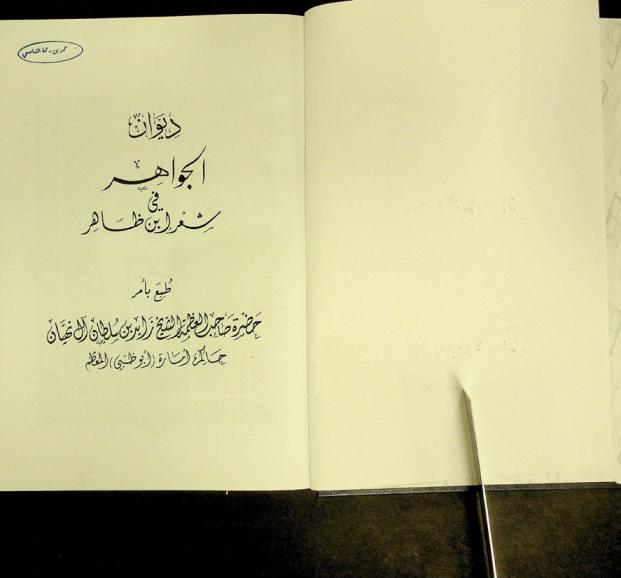 حمد بن رحمة الشامسي
ديوان
الجواهر
في
شعر ابن ظاهر
طبع بأمر
حضرة صاحب العظمة الشيخ زايد بن سلطان آل نهيان
حاكم امارة (أبوظبي) المعظم